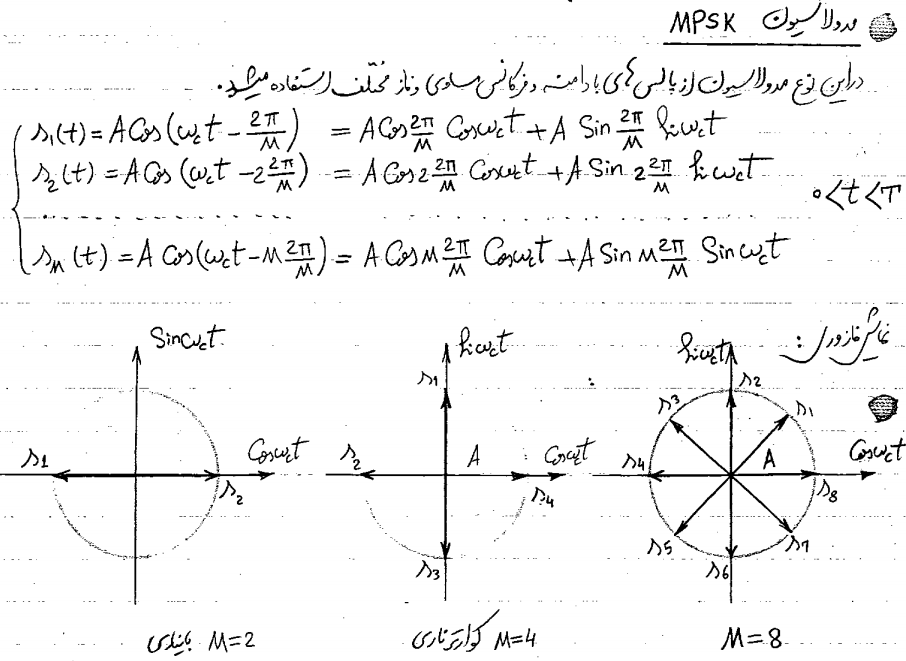 مدولاسیون MPSK
در این نوع مدولاسیون از پالس های با دامنه و فرکانس مساوی و فاز مختلف استفاده میشود.
s₁(t) = A Cos(ω_c t - 2π/M) = A Cos 2π/M Cosω_c t + A Sin 2π/M Sinω_c t
s₂(t) = A Cos(ω_c t - 2 2π/M) = A Cos 2 2π/M Cosω_c t + A Sin 2 2π/M Sinω_c t
0<t<T
s_M(t) = A Cos(ω_c t - M 2π/M) = A Cos M 2π/M Cosω_c t + A Sin M 2π/M Sinω_c t
نمایش فازوری :
Sinω_c t Sinω_c t Sinω_c t
s1 s2 Cosω_c t
s1 s2 s3 s4 A Cosω_c t
s1 s2 s3 s4 s5 s6 s7 s8 A Cosω_c t
باینری M=2
کواترناری M=4
M=8